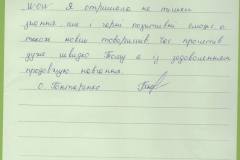 "WOW" Я отримала не тільки
знання але і гарні позитивні емоції а
також нових товаришів. Час пролетів
дуже швидко. Тому я із задоволенням
продовжую навчання.
О. Гонтаренко